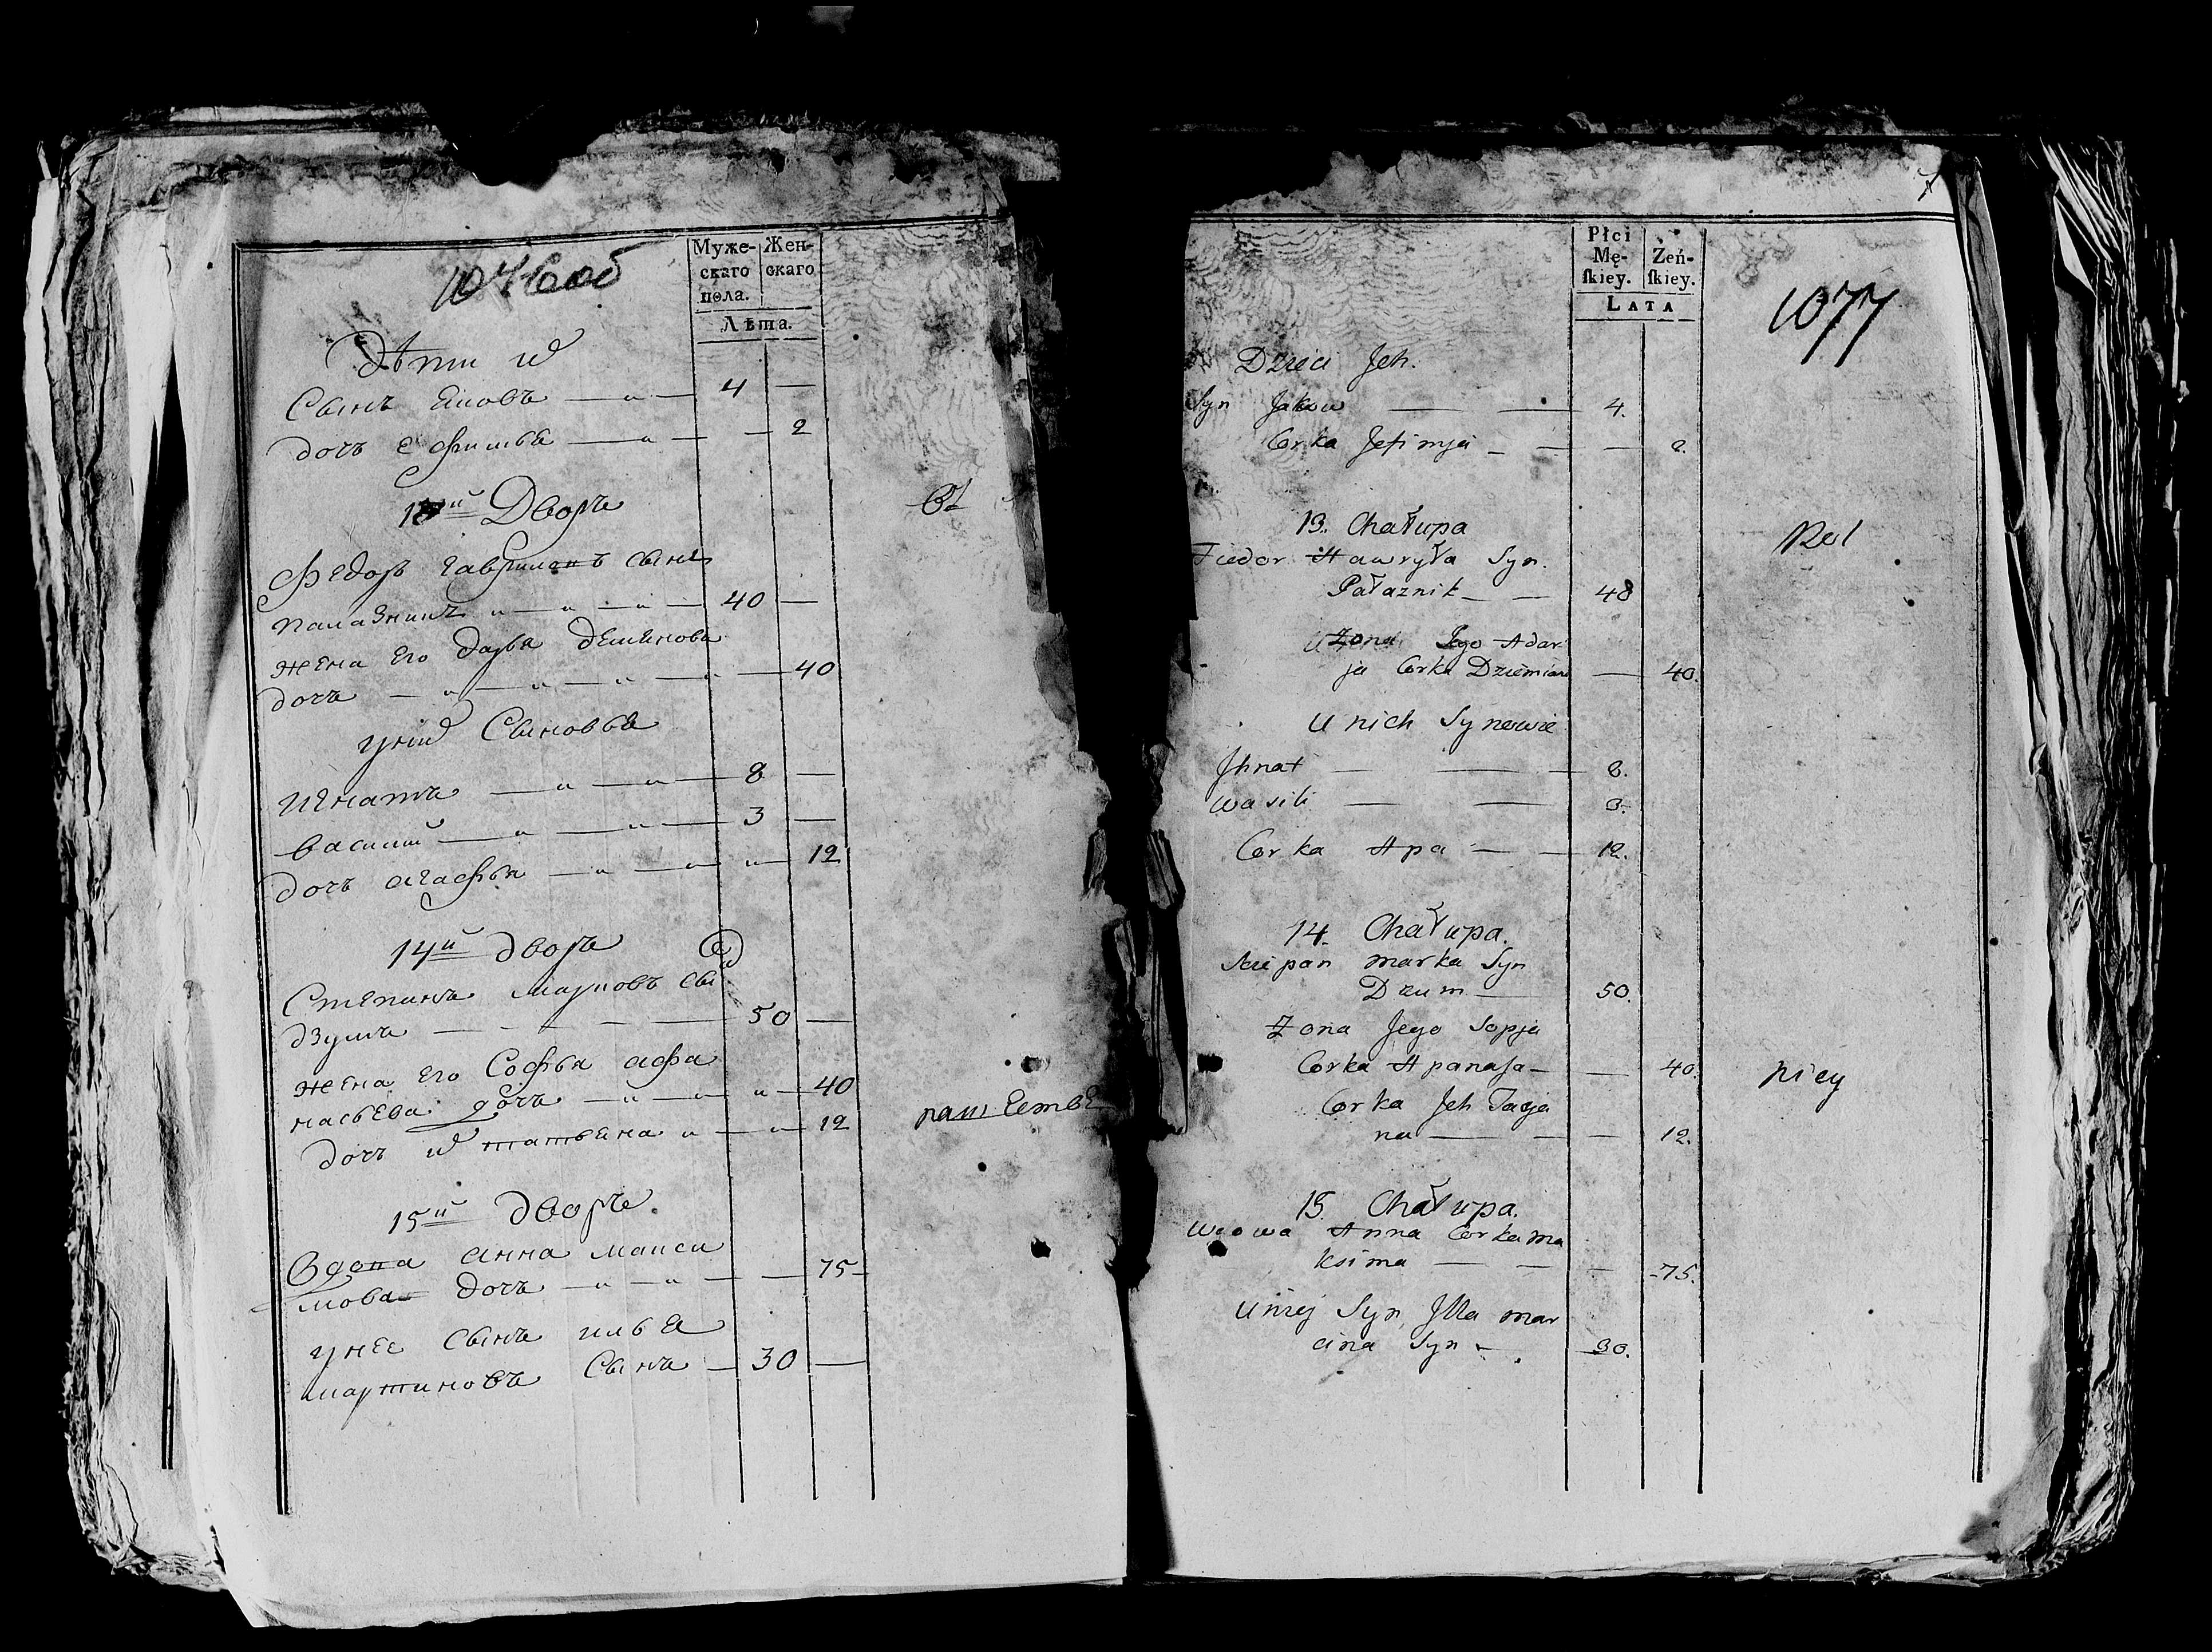 1076 об
Муже-
скаго
пола.
Жен-
скаго
Лѣта.
Дѣти их
Сынъ Яковъ — 4 —
дочь Ефимья — — 2
13й Дворъ
Федоръ Гавриловъ сынъ
Палазникъ — 40 —
жена Его дарья демьянова
дочь — — 40
у них Сыновья
Игнатъ — 8 —
василий — 3 —
дочь агафья — — 12
14й дворъ
Степанъ марковъ сы
дзумъ — 50 —
жена Его Софья афа
насьева дочь — — 40
дочь их татьяна — 12
15й дворъ.
Вдова анна макси
мова дочь — — 75
у нее сынъ илья
мартиновъ Сынъ — 30 —
Płci
Mę-
ſkiey.
Zeń-
ſkiey.
LATA
1077
Dzieci Jch.
Syn Jakow — 4.
Corka Jefimja — — 2.
13. Chałupa
Fiedor Hawryła Syn.
Pałaznik — 48
Zona Jego Adar
ja Corka Dziemian — 40.
U nich Synowie
Jhnat — 8.
Wasili — 3.
Corka Apa — 12.
14. Chałupa.
Sciepan marka Syn
Dzum — 50.
Zona Jego Sopja
Corka Apanasa — — 40.
Corka Jch Tacja
na — — 12.
15. Chałupa.
Wdowa Anna Corka ma
ksima — — 75.
U niej Syn Jlla mar
cina Syn — 30.